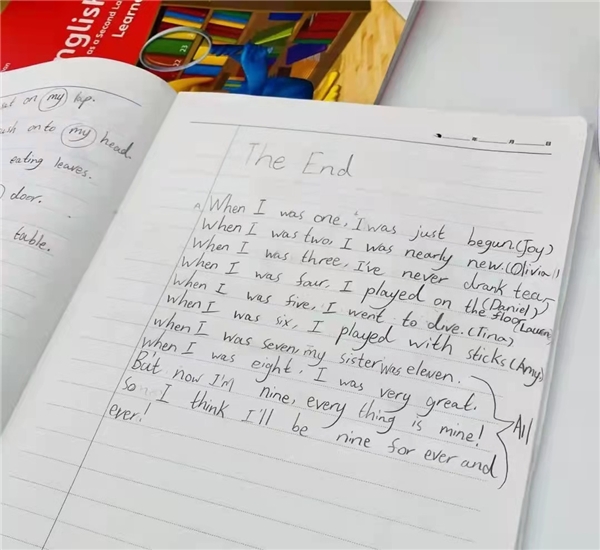 English
as a Second La
Learne
22
23
at on my lap.
ush onto my head.
eating leaves.
door.
table.
年 月 日
The End
When I was one, I was just begun.(Joy)
When I was two, I was nearly new.(Olivia)
When I was three, I've never drank tea.
(Daniel)
When I was four, I played on the floor(Lauren)
When I was five, I went to dive.(Tina)
When I was six, I played with sticks(Amy)
when I was seven, my sister was eleven.
when I was eight, I was very great.
But now I'm nine, every thing is mine!
So I think I'll be nine for ever and
ever!
All